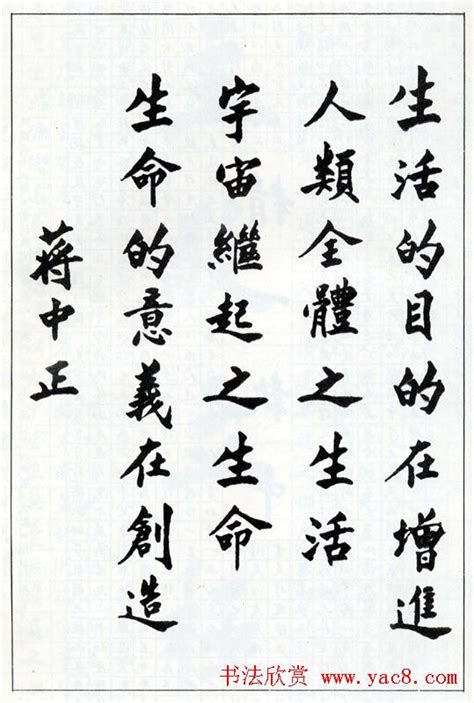 生活的目的在增進
人類全體之生活
宇宙繼起之生命
生命的意義在創造
蔣中正
书法欣赏 www.yac8.com